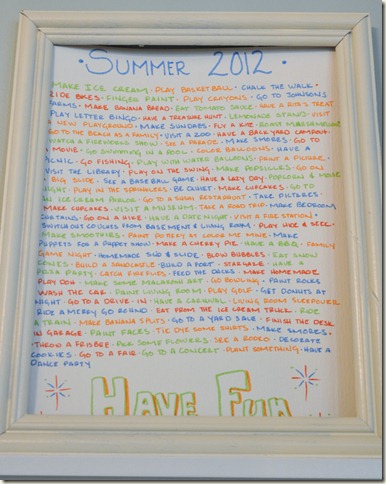 · SUMMER 2012 ·
MAKE ICE CREAM · PLAY BASKETBALL · CHALK THE WALK ·
RIDE BIKES · FINGER PAINT · PLAY CRAYONS · GO TO JOHNSONS
FARMS · MAKE BANANA BREAD · EAT TOMATO SAUCE · HAVE A RITA'S TREAT
PLAY LETTER BINGO · HAVE A TREASURE HUNT · LEMONADE STAND · VISIT
A NEW PLAYGROUND · MAKE SUNDAES · FLY A KITE · ROAST MARSHMALLOWS
GO TO THE BEACH AS A FAMILY · VISIT A ZOO · HAVE A BACKYARD CAMPOUT ·
WATCH A FIREWORKS SHOW · SEE A PARADE · MAKE SMORES · GO TO
A MOVIE · GO SWIMMING IN A POOL · COLOR BALLOONS · HAVE A
PICNIC · GO FISHING · PLAY WITH WATER BALLOONS · PAINT A PICTURE ·
VISIT THE LIBRARY · PLAY ON THE SWING · MAKE POPSICLES · GO ON
A BIG SLIDE · SEE A BASEBALL GAME · HAVE A LAZY DAY · POPCORN & MOVIE
NIGHT · PLAY IN THE SPRINKLERS · BE QUIET · MAKE CUPCAKES · GO TO
AN ICE CREAM PARLOR · GO TO A SUSHI RESTAURANT · TAKE PICTURES ·
MAKE CUPCAKES · VISIT A MUSEUM · TAKE A ROAD TRIP · MAKE BEDROOM
CURTAINS · GO ON A HIKE · HAVE A DATE NIGHT · VISIT A FIRE STATION ·
SWITCH OUT COUCHES FROM BASEMENT & LIVING ROOM · PLAY HIDE & SEEK ·
MAKE SMOOTHIES · PAINT POTTERY AT COLOR ME MINE · MAKE
PUPPETS FOR A PUPPET SHOW · MAKE A CHERRY PIE · HAVE A BBQ · FAMILY
GAME NIGHT · HOMEMADE SLIP & SLIDE · BLOW BUBBLES · EAT SNOW
CONES · BUILD A SANDCASTLE · BUILD A FORT · STARGAZE · HAVE A
PIZZA PARTY · CATCH FIREFLIES · FEED THE DUCKS · MAKE HOMEMADE
PLAY DOH · MAKE SOME MACARONI ART · GO BOWLING · PAINT ROCKS
WASH THE CAR · PAINT LIVING ROOM · PLAY GOLF · GET DONUTS AT
NIGHT · GO TO A DRIVE · IN · HAVE A CARNIVAL · LIVING ROOM SLEEPOVER
RIDE A MERRY GO ROUND · EAT FROM THE ICE CREAM TRUCK · RIDE
A TRAIN · MAKE BANANA SPLITS · GO TO A YARD SALE · FINISH THE DESK
IN GARAGE · PAINT FACES · TIE DYE SOME SHIRTS · MAKE SMORES ·
THROW A FRISBEE · PICK SOME FLOWERS · SEE A RODEO · DECORATE
COOKIES · GO TO A FAIR · GO TO A CONCERT · PLANT SOMETHING · HAVE A
DANCE PARTY
HAVE FUN